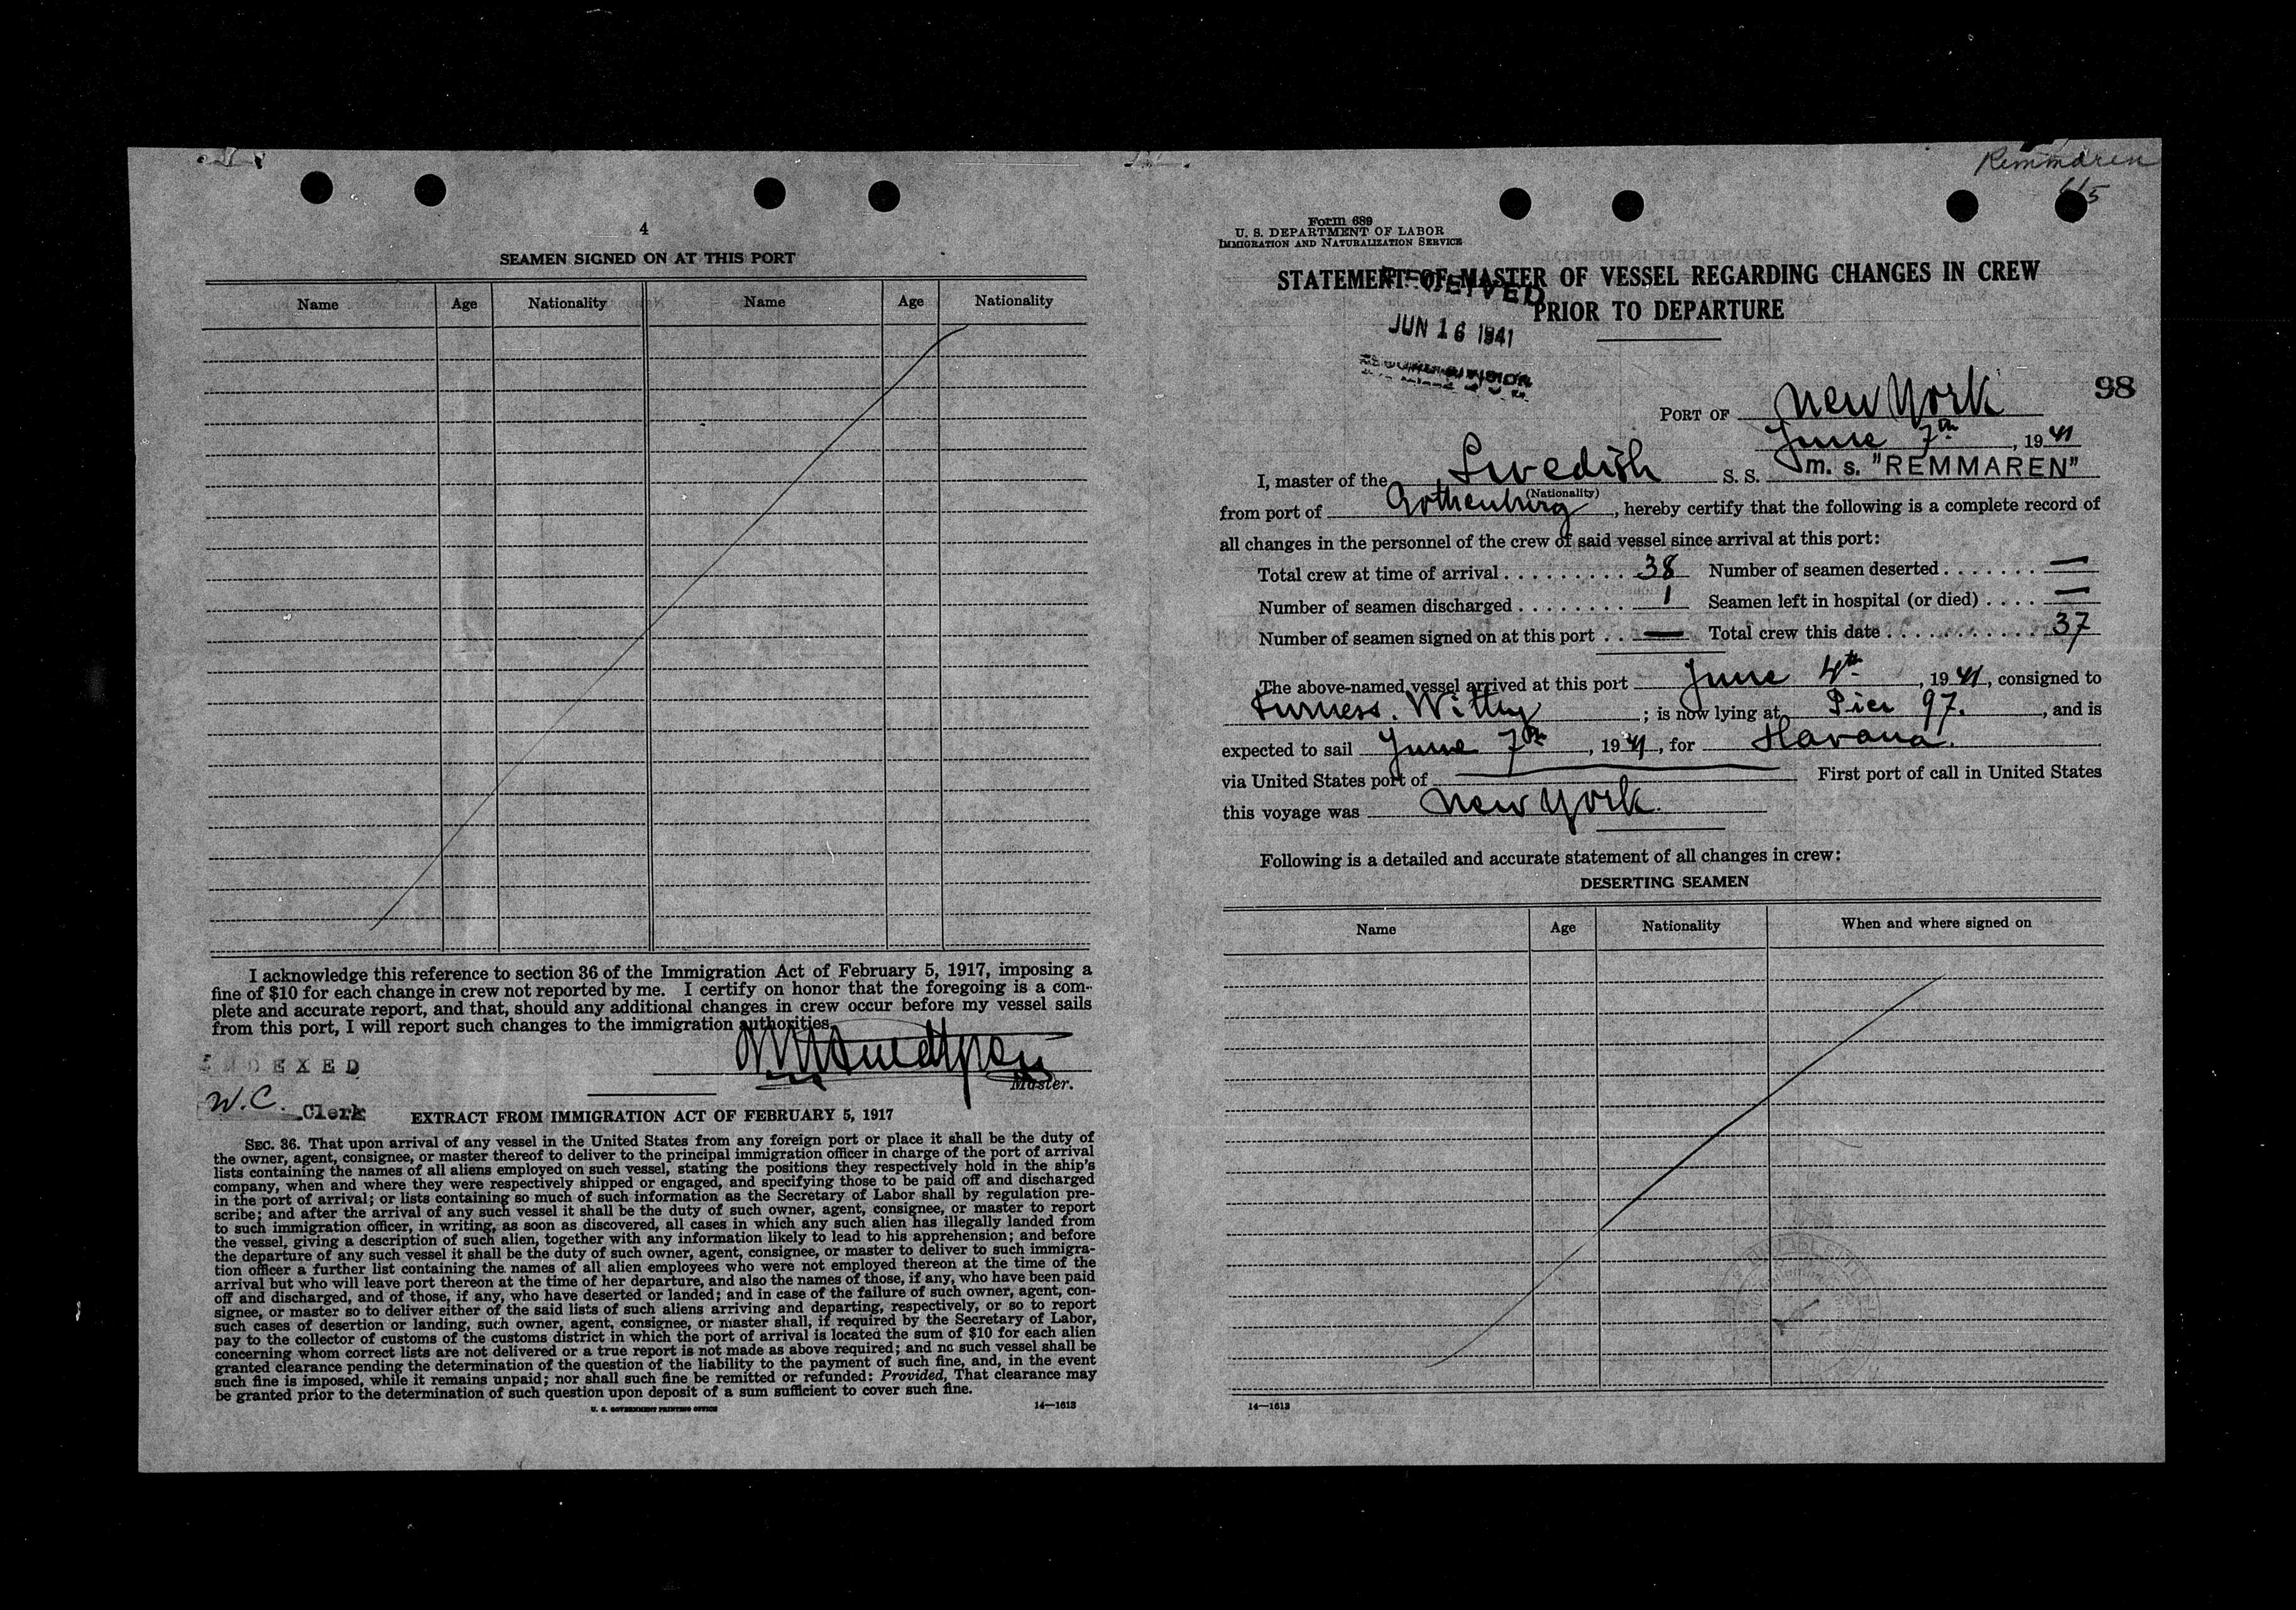 4
SEAMEN SIGNED ON AT THIS PORT
Name Age Nationality Name Age Nationality
I acknowledge this reference to section 36 of the Immigration Act of February 5, 1917, imposing a
fine of $10 for each change in crew not reported by me. I certify on honor that the foregoing is a com-
plete and accurate report, and that, should any additional changes in crew occur before my vessel sails
from this port, I will report such changes to the immigration authorities.
INDEXED
Master.
W.C. Clerk
EXTRACT FROM IMMIGRATION ACT OF FEBRUARY 5, 1917
SEC. 36. That upon arrival of any vessel in the United States from any foreign port or place it shall be the duty of
the owner, agent, consignee, or master thereof to deliver to the principal immigration officer in charge of the port of arrival
lists containing the names of all aliens employed on such vessel, stating the positions they respectively hold in the ship's
company, when and where they were respectively shipped or engaged, and specifying those to be paid off and discharged
in the port of arrival; or lists containing so much of such information as the Secretary of Labor shall by regulation pre-
scribe; and after the arrival of any such vessel it shall be the duty of such owner, agent, consignee, or master to report
to such immigration officer, in writing, as soon as discovered, all cases in which any such alien has illegally landed from
the vessel, giving a description of such alien, together with any information likely to lead to his apprehension; and before
the departure of any such vessel it shall be the duty of such owner, agent, consignee, or master to deliver to such immigra-
tion officer a further list containing the names of all alien employees who were not employed thereon at the time of the
arrival but who will leave port thereon at the time of her departure, and also the names of those, if any, who have been paid
off and discharged, and of those, if any, who have deserted or landed; and in case of the failure of such owner, agent, con-
signee, or master so to deliver either of the said lists of such aliens arriving and departing, respectively, or so to report
such cases of desertion or landing, such owner, agent, consignee, or master shall, if required by the Secretary of Labor,
pay to the collector of customs of the customs district in which the port of arrival is located the sum of $10 for each alien
concerning whom correct lists are not delivered or a true report is not made as above required; and no such vessel shall be
granted clearance pending the determination of the question of the liability to the payment of such fine, and, in the event
such fine is imposed, while it remains unpaid; nor shall such fine be remitted or refunded: Provided, That clearance may
be granted prior to the determination of such question upon deposit of a sum sufficient to cover such fine.
U. S. GOVERNMENT PRINTING OFFICE 14—1613
Remmaren
Form 689
U. S. DEPARTMENT OF LABOR
IMMIGRATION AND NATURALIZATION SERVICE
STATEMENT OF MASTER OF VESSEL REGARDING CHANGES IN CREW
PRIOR TO DEPARTURE
RECEIVED
JUN 16 1941
98
PORT OF New York
June 7th, 1941
I, master of the Swedish S. S. m. s. "REMMAREN"
(Nationality)
from port of Gothenburg, hereby certify that the following is a complete record of
all changes in the personnel of the crew of said vessel since arrival at this port:
Total crew at time of arrival . . . . . . . . . 38 Number of seamen deserted . . . . . . . —
Number of seamen discharged . . . . . . . . 1 Seamen left in hospital (or died) . . . . —
Number of seamen signed on at this port . . — Total crew this date . . . . . . . . . . . 37
The above-named vessel arrived at this port June 4th, 1941, consigned to
Furness. Withy ; is now lying at Pier 97. , and is
expected to sail June 7th, 1941, for Havana.
via United States port of — First port of call in United States
this voyage was New York.
Following is a detailed and accurate statement of all changes in crew:
DESERTING SEAMEN
Name Age Nationality When and where signed on
14—1613